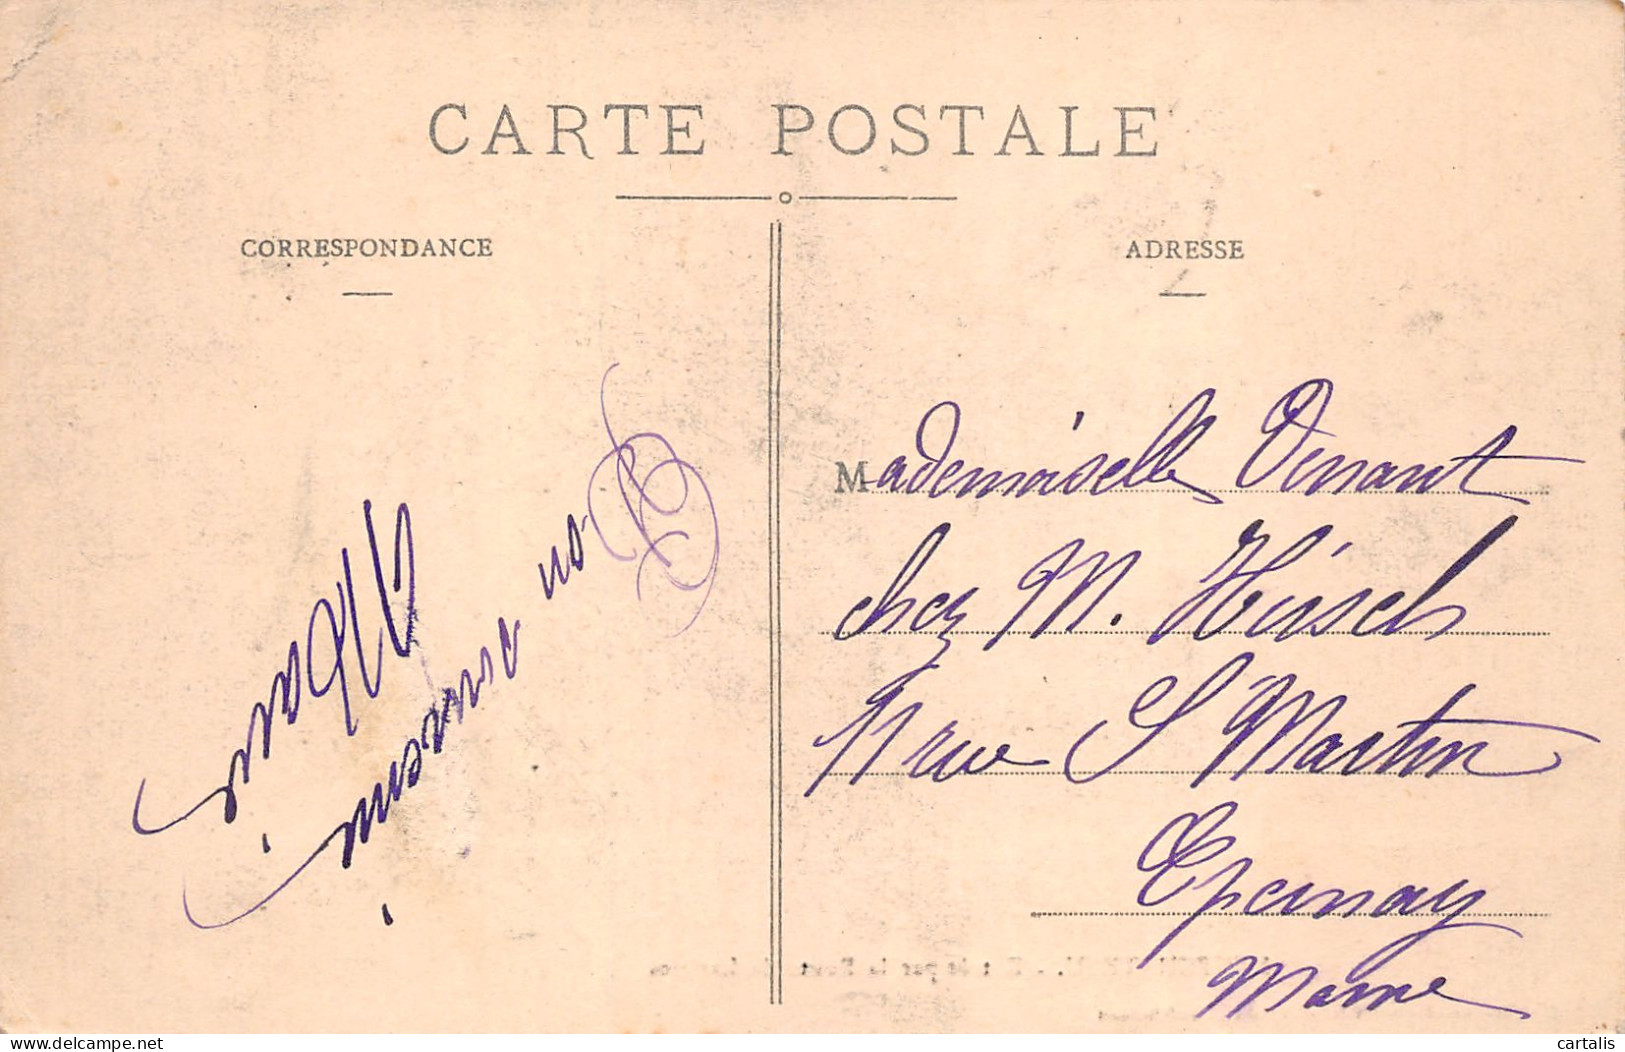 CARTE POSTALE
CORRESPONDANCE
ADRESSE
Bon
Mademoiselle Venant
chez M. Hirsch
11 rue S Martin
Epernay
Marne
www.delcampe.net
cartalis